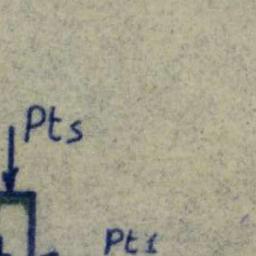 Pts
Pt1